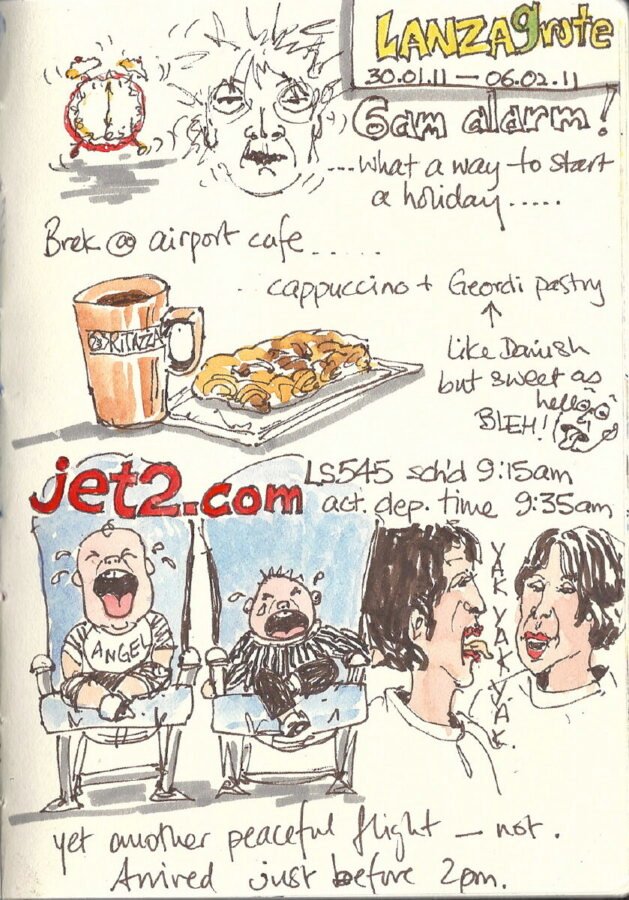 LANZAgrote
30.01.11 — 06.02.11
6am alarm!
...what a way to start
a holiday.....
Brek @ airport cafe.....
.. cappuccino + Geordi pastry
like Danish
but sweet as
hell
BLEH!
RITAZZA
jet2.com
LS545 sch'd 9:15am
act. dep. time 9:35am
ANGEL
YAK YAK YAK.
yet another peaceful flight — not.
Arrived just before 2pm.